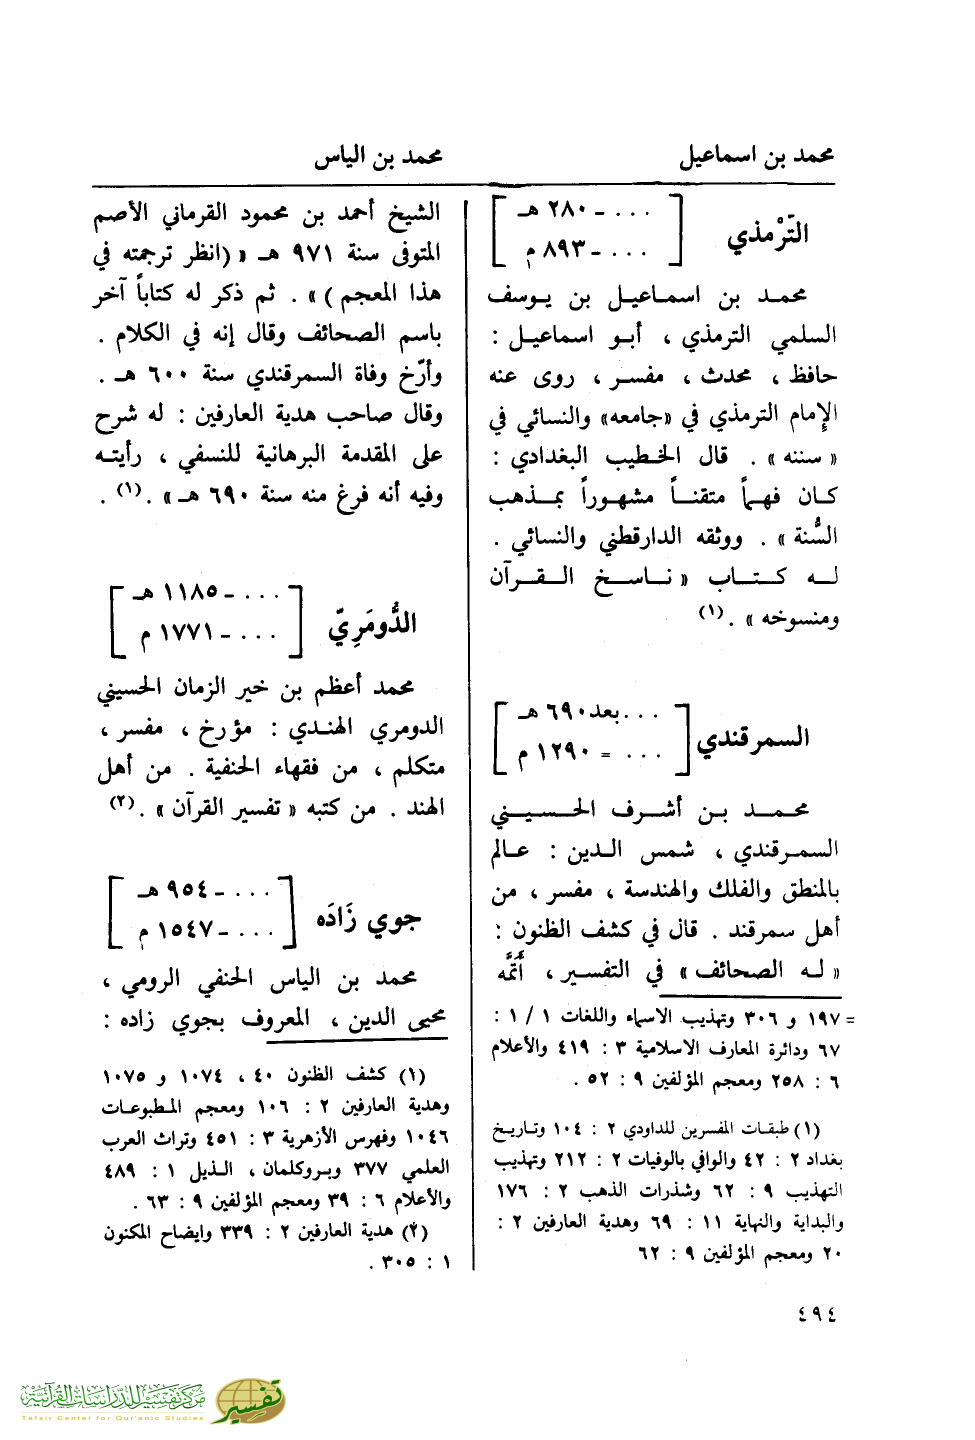 محمد بن اسماعيل
محمد بن الياس
التّرْمذي
... - ٢٨٠ هـ
... - ٨٩٣ م
محمد بن اسماعيل بن يوسف
السلمي الترمذي ، أبو اسماعيل :
حافظ ، محدث ، مفسر ، روى عنه
الإمام الترمذي في «جامعه» والنسائي في
«سننه» . قال الخطيب البغدادي :
كان فهماً متقناً مشهوراً بمذهب
السُّنة» . ووثقه الدارقطني والنسائي .
له كتاب «ناسخ القرآن
ومنسوخه» .(١)
السمرقندي
... بعد ٦٩٠ هـ
... = ١٢٩٠ م
محمد بن أشرف الحسيني
السمرقندي ، شمس الدين : عالم
بالمنطق والفلك والهندسة ، مفسر ، من
أهل سمرقند . قال في كشف الظنون :
«له الصحائف» في التفسير ، أتمَّه
= ١٩٧ و ٣٠٦ وتهذيب الاسماء واللغات ١ / ١ :
٦٧ ودائرة المعارف الاسلامية ٣ : ٤١٩ والأعلام
٦ : ٢٥٨ ومعجم المؤلفين ٩ : ٥٢ .
(١) طبقات المفسرين للداودي ٢ : ١٠٤ وتاريخ
بغداد ٢ : ٤٢ والوافي بالوفيات ٢ : ٢١٢ وتهذيب
التهذيب ٩ : ٦٢ وشذرات الذهب ٢ : ١٧٦
والبداية والنهاية ١١ : ٦٩ وهدية العارفين ٢ :
٢٠ ومعجم المؤلفين ٩ : ٦٢
الشيخ أحمد بن محمود القرماني الأصم
المتوفى سنة ٩٧١ هـ «(انظر ترجمته في
هذا المعجم)» . ثم ذكر له كتاباً آخر
باسم الصحائف وقال إنه في الكلام .
وأرّخ وفاة السمرقندي سنة ٦٠٠ هـ .
وقال صاحب هدية العارفين : له شرح
على المقدمة البرهانية للنسفي ، رأيته
وفيه أنه فرغ منه سنة ٦٩٠ هـ» .(١) .
الدُّومَرِيّ
... - ١١٨٥ هـ
... - ١٧٧١ م
محمد أعظم بن خير الزمان الحسيني
الدومري الهندي : مؤرخ ، مفسر ،
متكلم ، من فقهاء الحنفية . من أهل
الهند . من كتبه «تفسير القرآن» .(٢)
جوي زَادَه
... - ٩٥٤ هـ
... - ١٥٤٧ م
محمد بن الياس الحنفي الرومي ،
محيى الدين ، المعروف بجوي زاده :
(١) كشف الظنون ٤٠ ، ١٠٧٤ و ١٠٧٥
وهدية العارفين ٢ : ١٠٦ ومعجم المطبوعات
١٠٤٦ وفهرس الأزهرية ٣ : ٤٥١ وتراث العرب
العلمي ٣٧٧ وبروكلمان ، الذيل ١ : ٤٨٩
والأعلام ٦ : ٣٩ ومعجم المؤلفين ٩ : ٦٣ .
(٢) هدية العارفين ٢ : ٣٣٩ وايضاح المكنون
١ : ٣٠٥ .
٤٩٤
مركز تفسير للدراسات القرآنية
Tafsir Center for Qur'anic Studies
تفسير